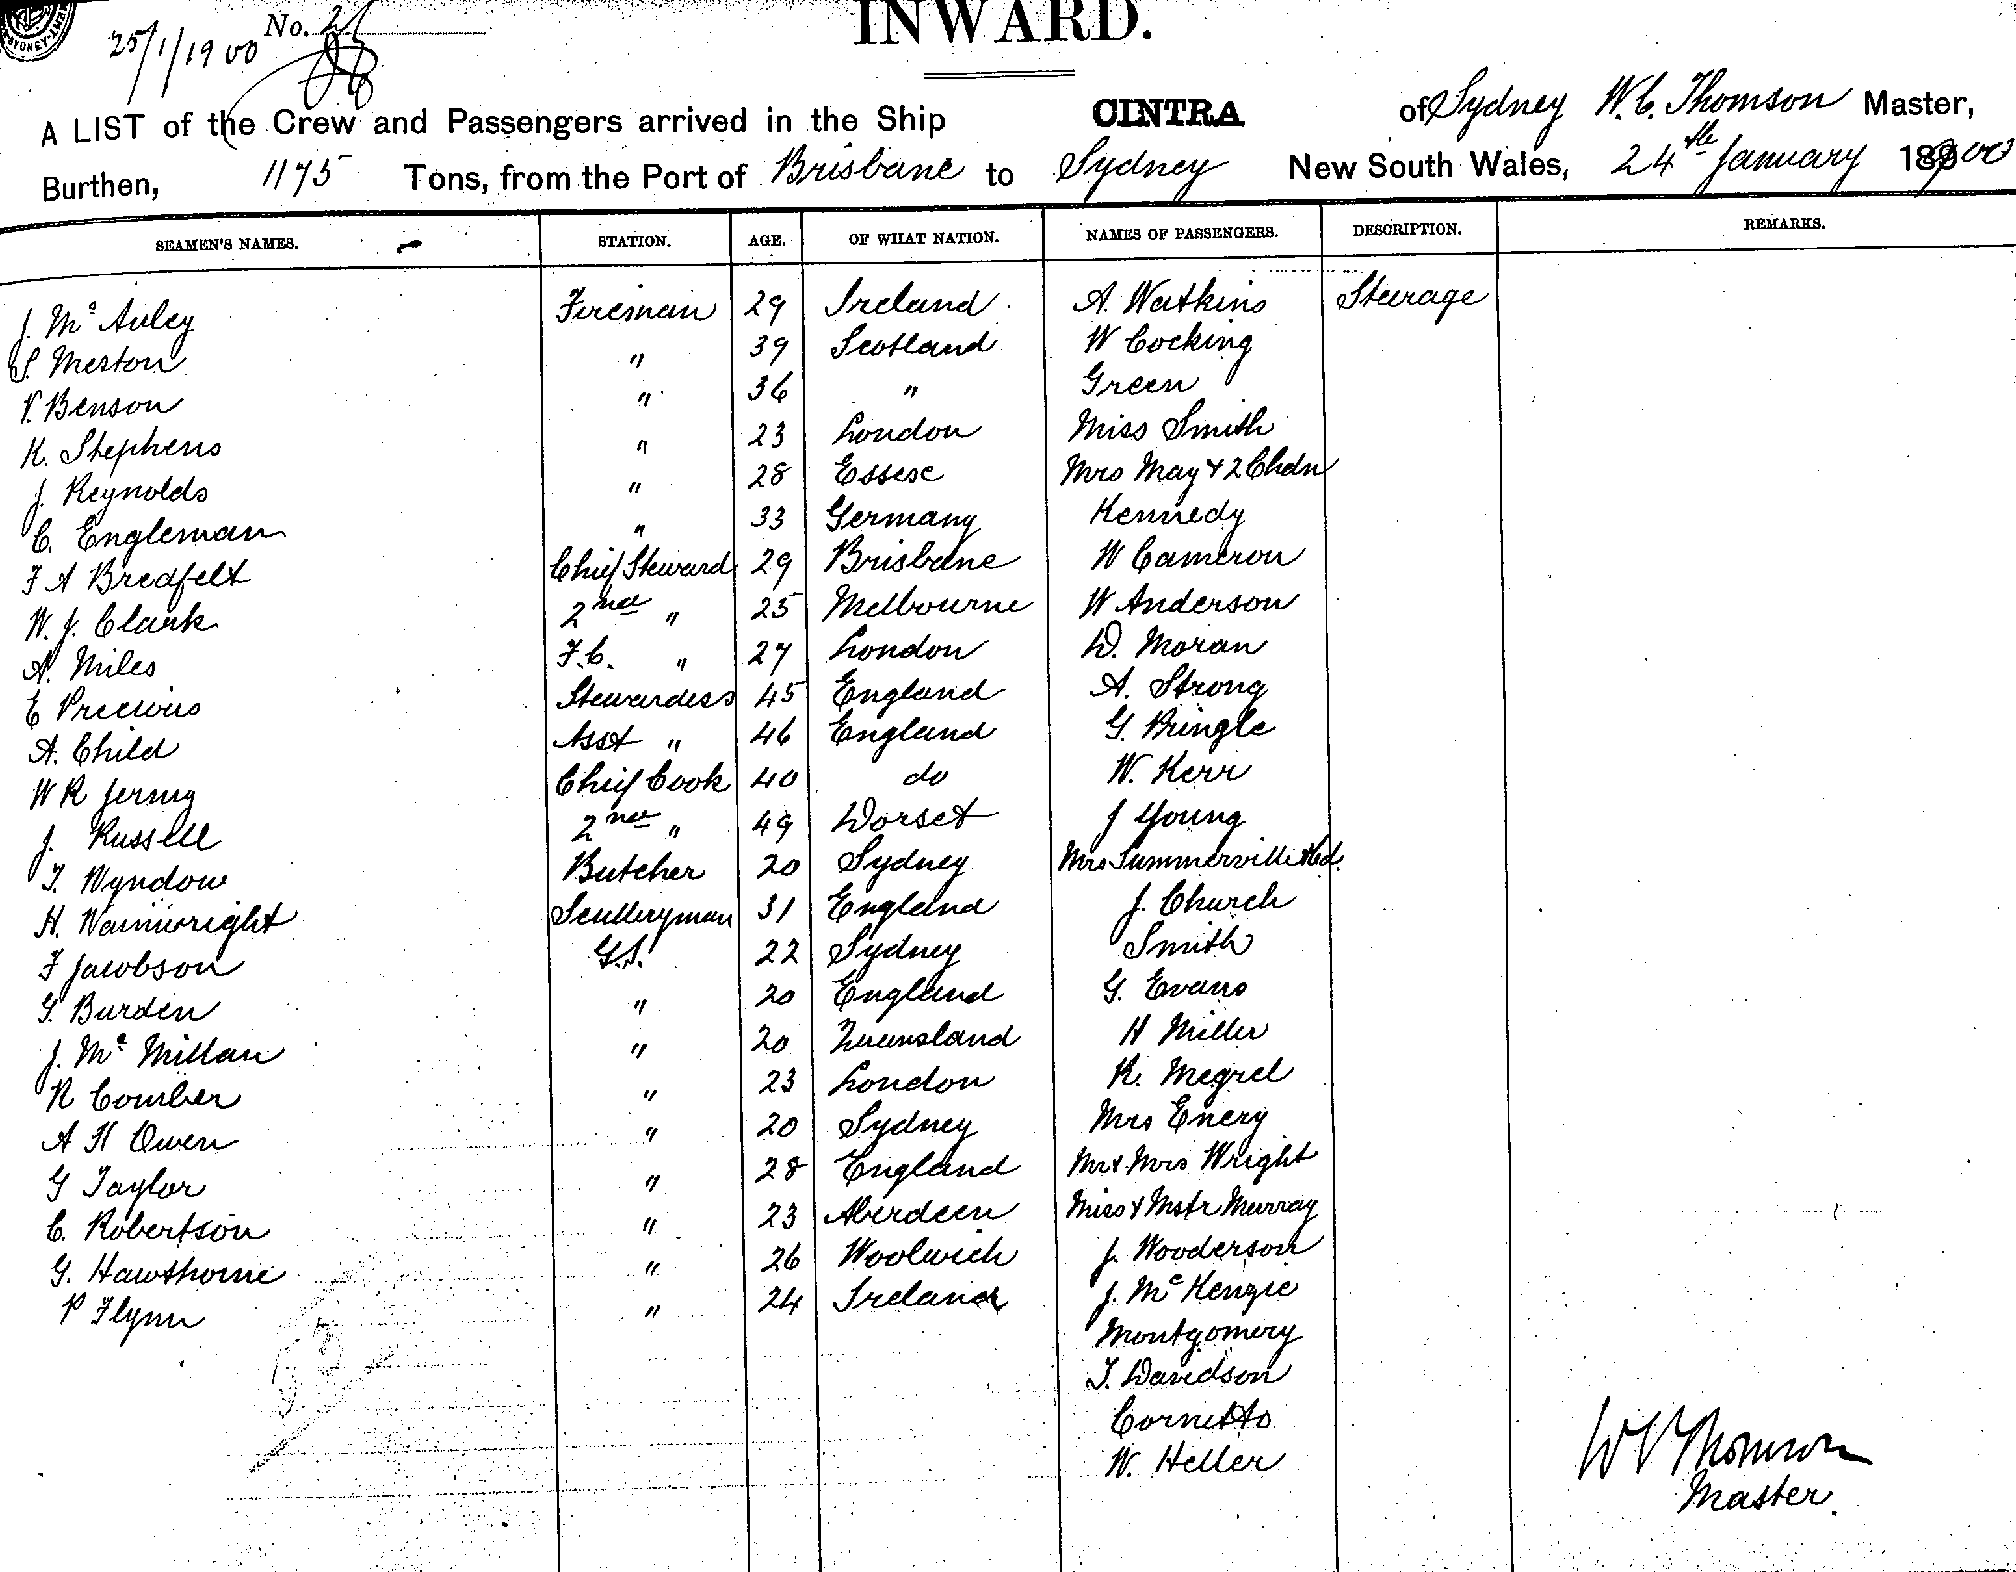 SYDNEY
25/1/1900 No. 21
INWARD.
A LIST of the Crew and Passengers arrived in the Ship CINTRA of Sydney W. C. Thomson Master,
Burthen, 1175 Tons, from the Port of Brisbane to Sydney New South Wales, 24th January 1900
SEAMEN'S NAMES. STATION. AGE. OF WHAT NATION. NAMES OF PASSENGERS. DESCRIPTION. REMARKS.
J. Mc Auley Fireman 29 Ireland A. Watkins Steerage
S. Meston " 39 Scotland W Cocking
P. Benson " 36 " Green
K. Stephens " 23 London Miss Smith
J. Reynolds " 28 Essex Mrs May & 2 Chdn
C. Engleman " 33 Germany Kennedy
F A Bredfelt Chief Steward 29 Brisbane W Cameron
W. J. Clark 2nd " 25 Melbourne W Anderson
A. Miles F.C. " 27 London D. Moran
E Precious Stewardess 45 England A. Strong
A. Child Asst " 46 England G. Pringle
W R Chief Cook 40 do W. Kerr
J. Russell 2nd " 49 Dorset J Young
T. Wyndow Butcher 20 Sydney Mrs Summerville &
H. Wainwright Sculleryman 31 England J. Church
F Jacobson G.S. 22 Sydney Smith
G. Burden " 20 England G. Evans
J. Mc Millan " 20 Queensland H Miller
R Comber " 23 London R. Megrel
A H Owen " 20 Sydney Mrs Enery
G Taylor " 28 England Mr & Mrs Wright
C. Robertson " 23 Aberdeen Miss & Mstr Murray
G. Hawthorne " 26 Woolwich J. Wooderson
P Flynn " 24 Ireland J. Mc Kenzie
Montgomery
T. Davidson
Cornetto
W. Heller
W C Thomson
Master.